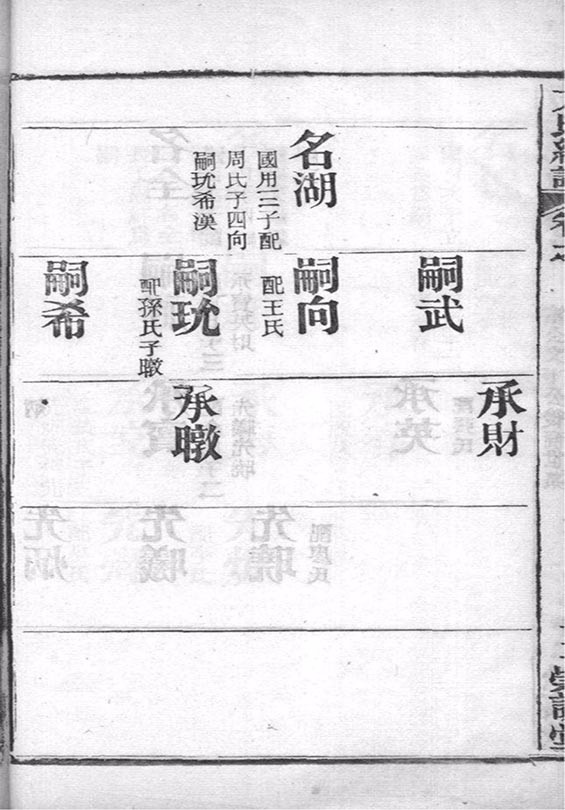 名湖
國用二子配
周氏子四向
嗣玧希漢
嗣武
嗣向
配王氏
嗣玧
配孫氏子暾
嗣希
承財
承暾